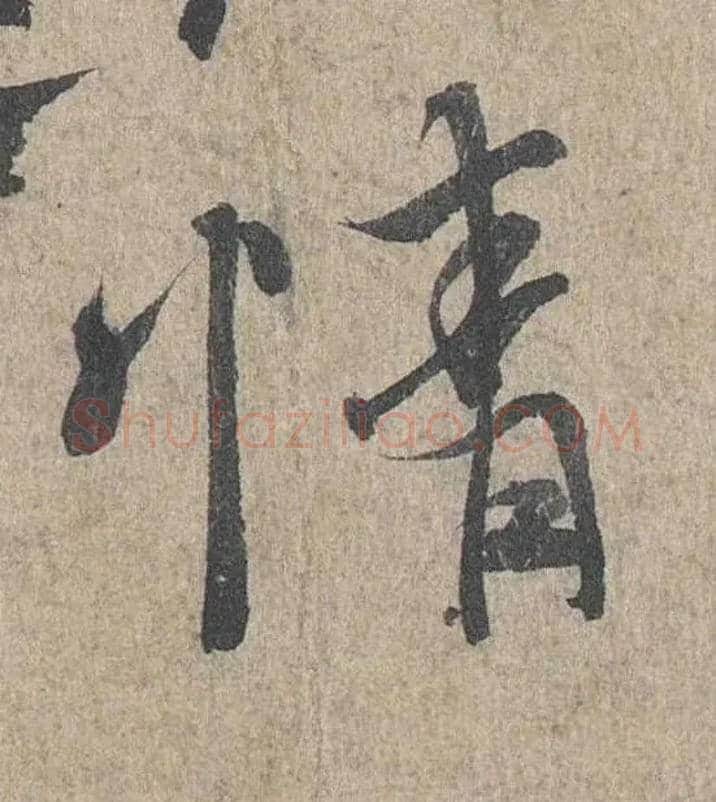 情
Shufaziliao.COM